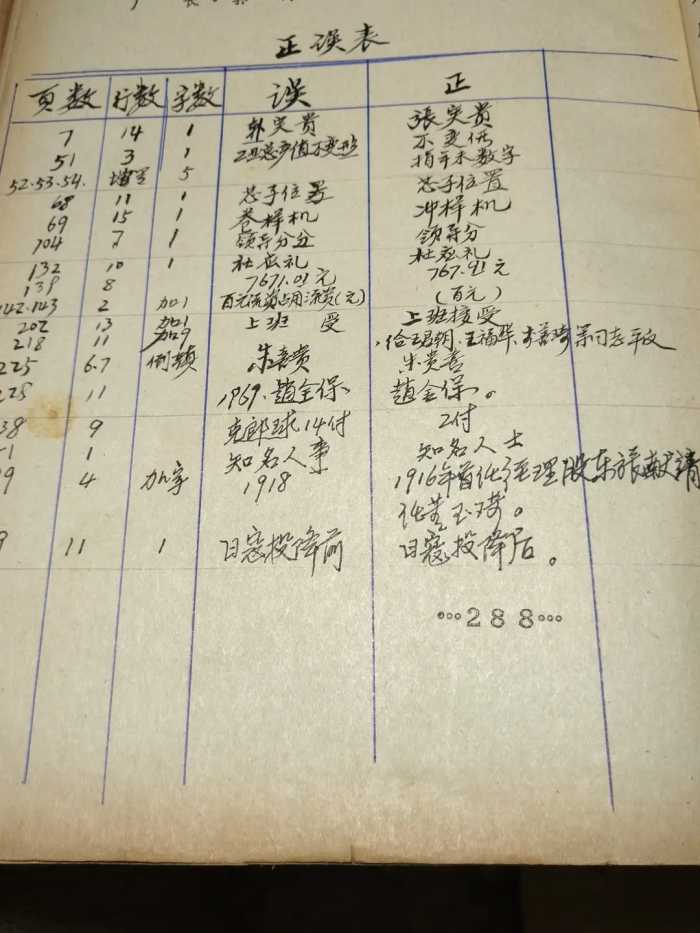 正误表
页数 行数 字数 误 正
7 14 1 突贵 張突贵
51 3 1 工业总产值不变形 不变价
52.53.54. 增 5 指并未数字
68 11 1 芯子位 芯子位置
69 15 1 卷样机 冲样机
104 7 1 领导分 领导分
132 10 1 社 礼 社 礼
139 8 7671.01元 767.91元
142.143 2 加1 百元 占用流资(元) (百元)
202 13 加1 上班 受 上班接受
218 11 加9 王福华. 等同志平反
225 6.7 倒颠 朱善贵 朱贵善
228 11 1969.趙金保 趙金保。
38 9 克郎球14付 2付
1 1 知名人事 知名人士
9 4 加字 1918 1916年首任经理股东張献請
任董玉琦。
9 11 1 日寇投降前 日寇投降后。
…288…